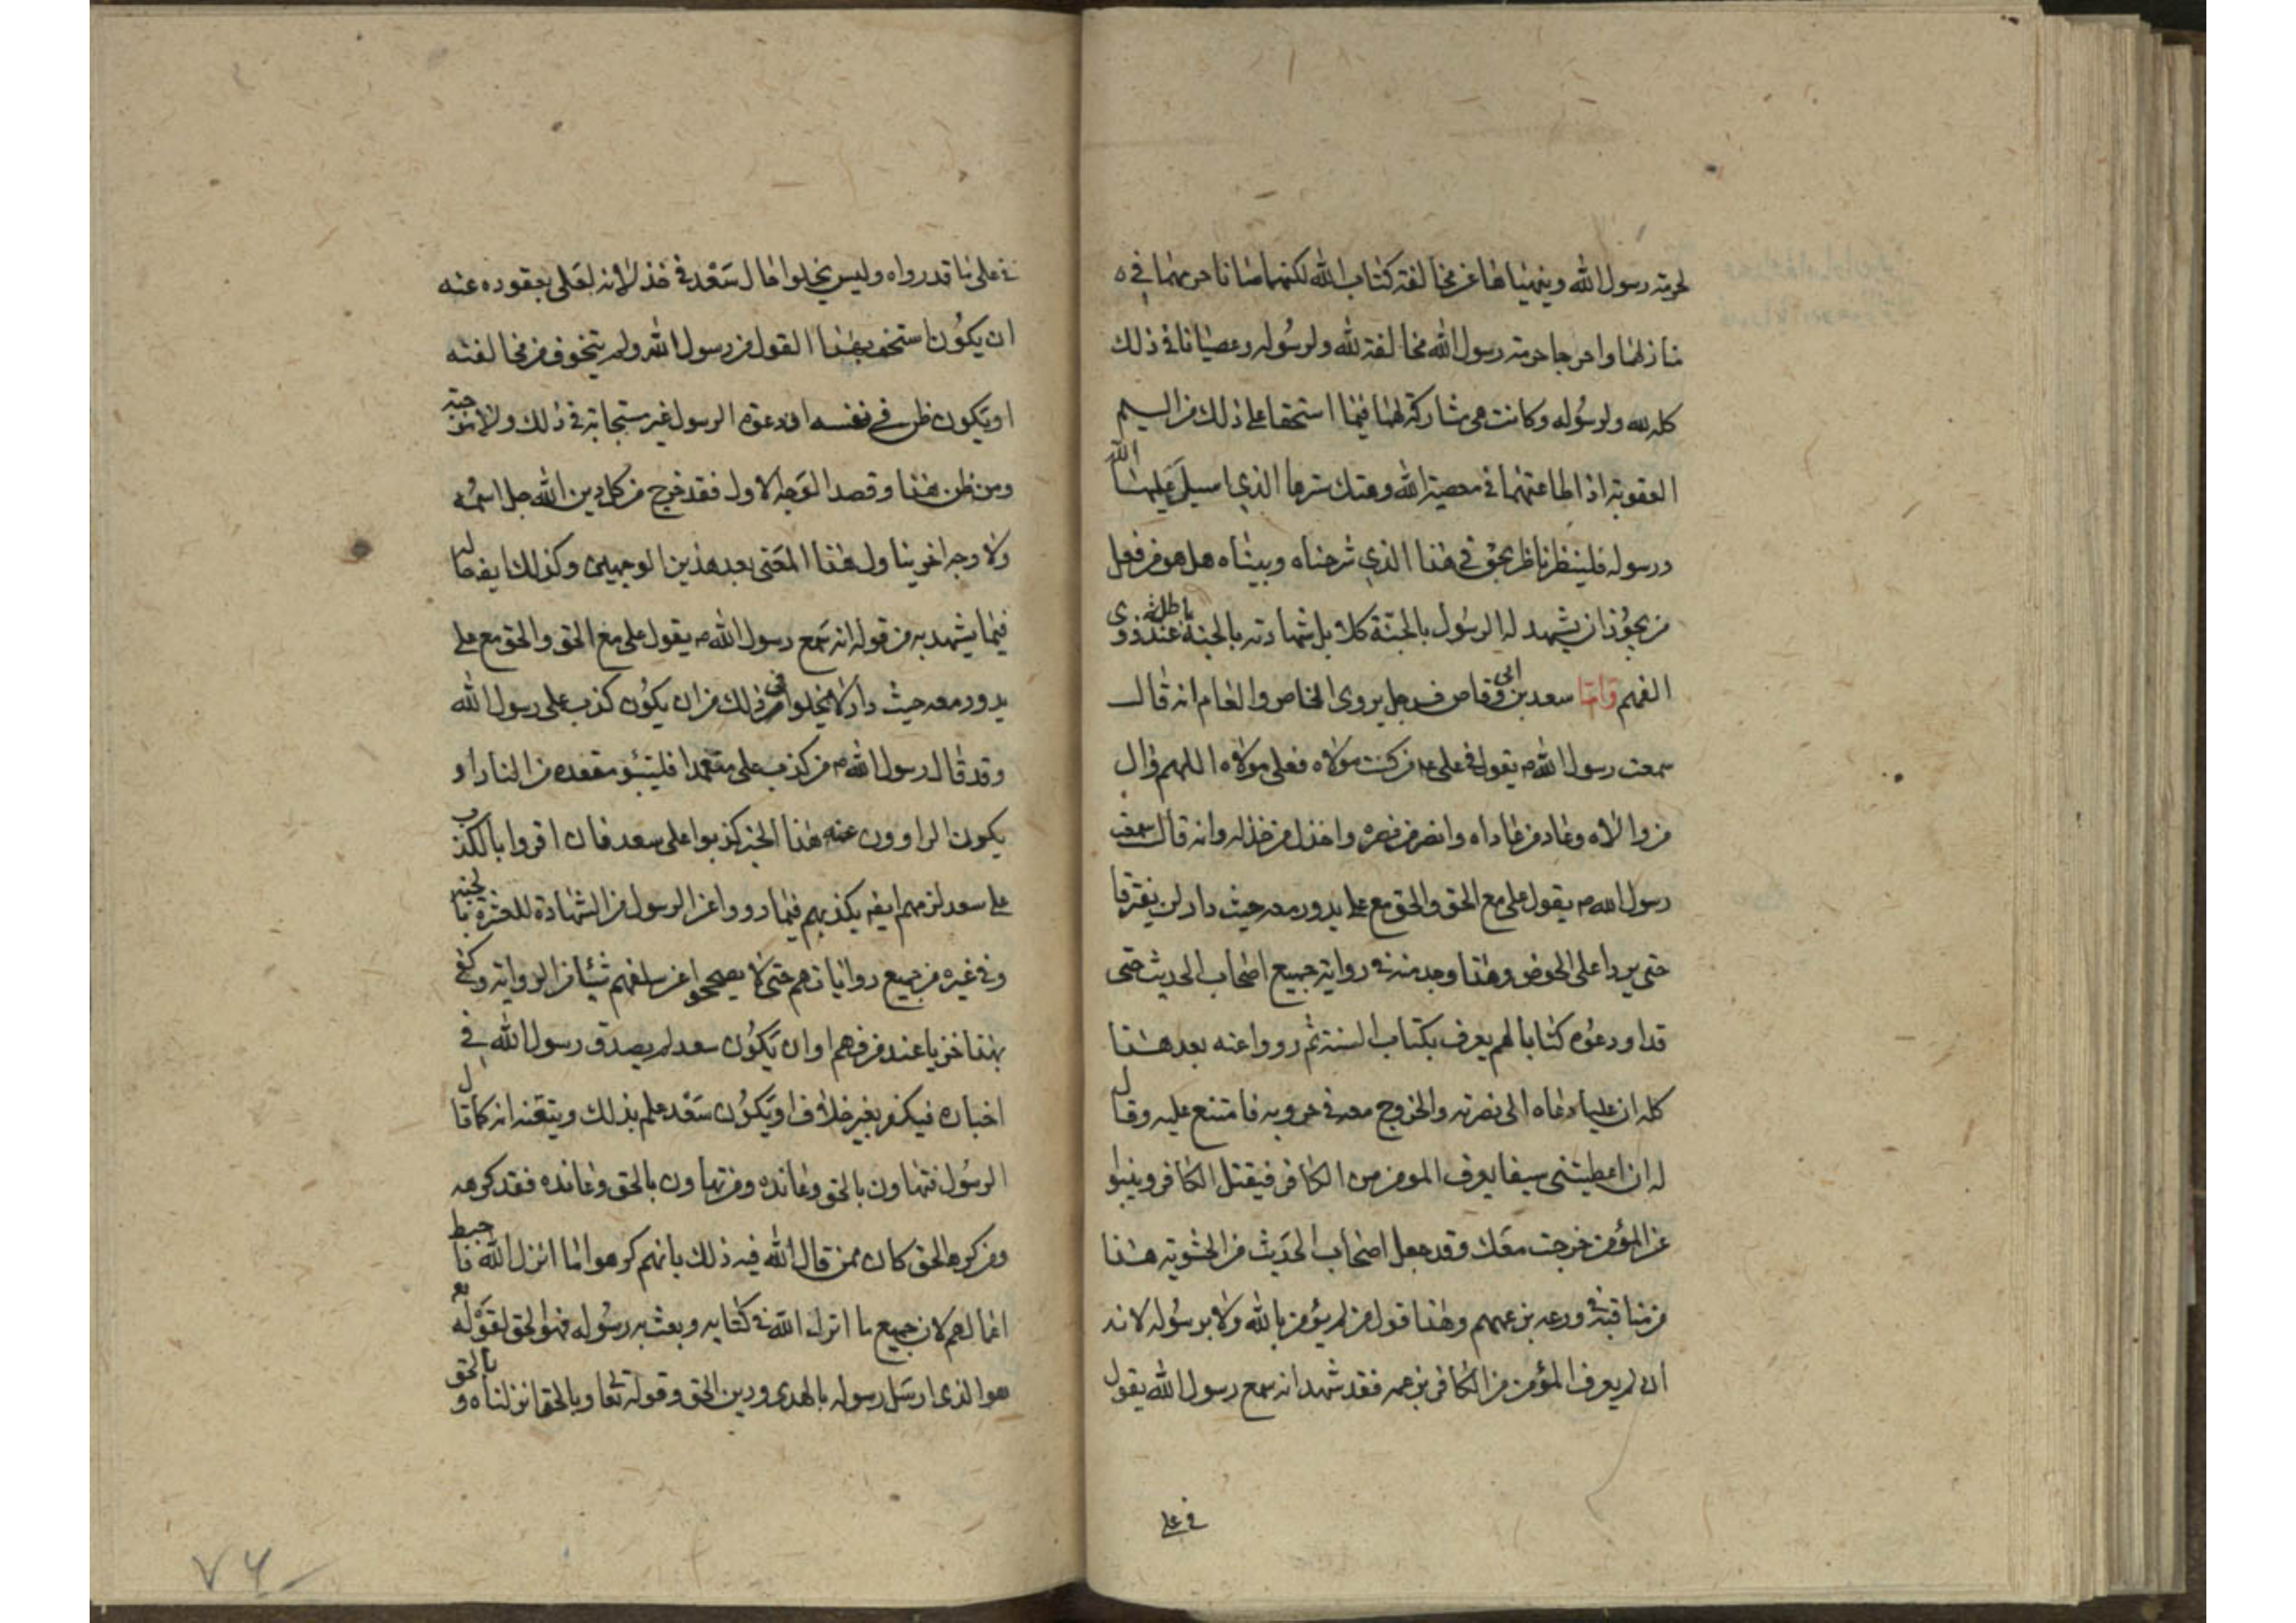 لحرمة رسول الله وينهياهما عن مخالفة كتاب الله لكنهما صانا حريمهما في
منازلهما واخرجا حرمة رسول الله مخالفة لله ولرسوله وعصيانا في ذلك
كله لله ولرسوله وكانت هي مشاركة لهما فيما استحقا على ذلك من اليم
العقوبة اذ اطاعتهما في معصية الله وهتك سترها الذي اسبل عليها الله
ورسوله فلينظر ناظر بحق في هذا الذي شرحناه وبيناه هل هو من فعل
من يجوز ان يشهد له الرسول بالجنة كلا بل شهادته بالجنة باطلة عند ذوي
الفهم واما سعد بن ابي وقاص فرجل يروى الخاص والعام انه قال
سمعت رسول الله ص يقول في علي ع من كنت مولاه فعلي مولاه اللهم وال
من والاه وعاد من عاداه وانصر من نصره واخذل من خذله وانه قال سمعت
رسول الله ص يقول علي مع الحق والحق مع علي يدور معه حيث دار لن يفترقا
حتى يردا على الحوض وهذا وجد منه في رواية جميع اصحاب الحديث حتى
قد اودعوه كتابا لهم يعرف بكتاب السنة ثم رووا عنه بعد هذا
كله ان عليا دعاه الى نصرته والخروج معه في حروبه فامتنع عليه وقال
له ان اعطيتني سيفا يعرف المومن من الكافر فيقتل الكافر وينبو
عن المؤمن خرجت معك وقد جعل اصحاب الحديث من الحشوية هذا
من مناقبه في ورعه بزعمهم وهذا قول من لم يؤمن بالله ولا برسوله لانه
ان لم يعرف المؤمن من الكافر بزعمه فقد شهد انه سمع رسول الله يقول
في علي
في علي ما قد رواه وليس يخلوا حال سعد في خذلانه لعلي بقعوده عنه
ان يكون استخف بهذا القول من رسول الله ولم يتخوف من مخالفته
او يكون ظن في نفسه ان دعوة الرسول غير مستجابة في ذلك ولا متوجبة
ومن ظن هذا وقصد الوجه الاول فقد خرج من كل دين الله جل اسمه
ولا وجه اخر يتاول هذا المعنى بعد هذين الوجهين وكذلك ايضا حاله
فيما يشهد به من قوله انه سمع رسول الله ص يقول علي مع الحق والحق مع علي
يدور معه حيث دار لا يخلوا في ذلك من ان يكون كذب على رسول الله
وقد قال رسول الله ص من كذب علي متعمدا فليتبؤ مقعده من النار او
يكون الراوون عنه هذا الخبر كذبوا على سعد فان اقروا بالكذب
على سعد لزمهم ايضا يكذبهم فيما رووا عن الرسول من الشهادة للعشرة بالجنة
وفي غيره من جميع رواياتهم حتى لا يصححوا عن سلفهم شيئا من الرواية وكفى
بهذا خزيا عند من فهم او ان يكون سعد لم يصدق رسول الله في
اخباره فيكفر بغير خلاف او يكون سعد علم بذلك وتيقنه انه كما قال
الرسول فتهاون بالحق وعانده ومن تهاون بالحق وعانده فقد كرهه
ومن كره الحق كان ممن قال الله فيه ذلك بانهم كرهوا ما انزل الله فاحبط
اعمالهم لان جميع ما انزل الله في كتابه وبعث به رسوله فهو الحق لقوله تع
هو الذي ارسل رسوله بالهدى ودين الحق وقوله تعالى وبالحق انزلناه وبالحق
٧٦